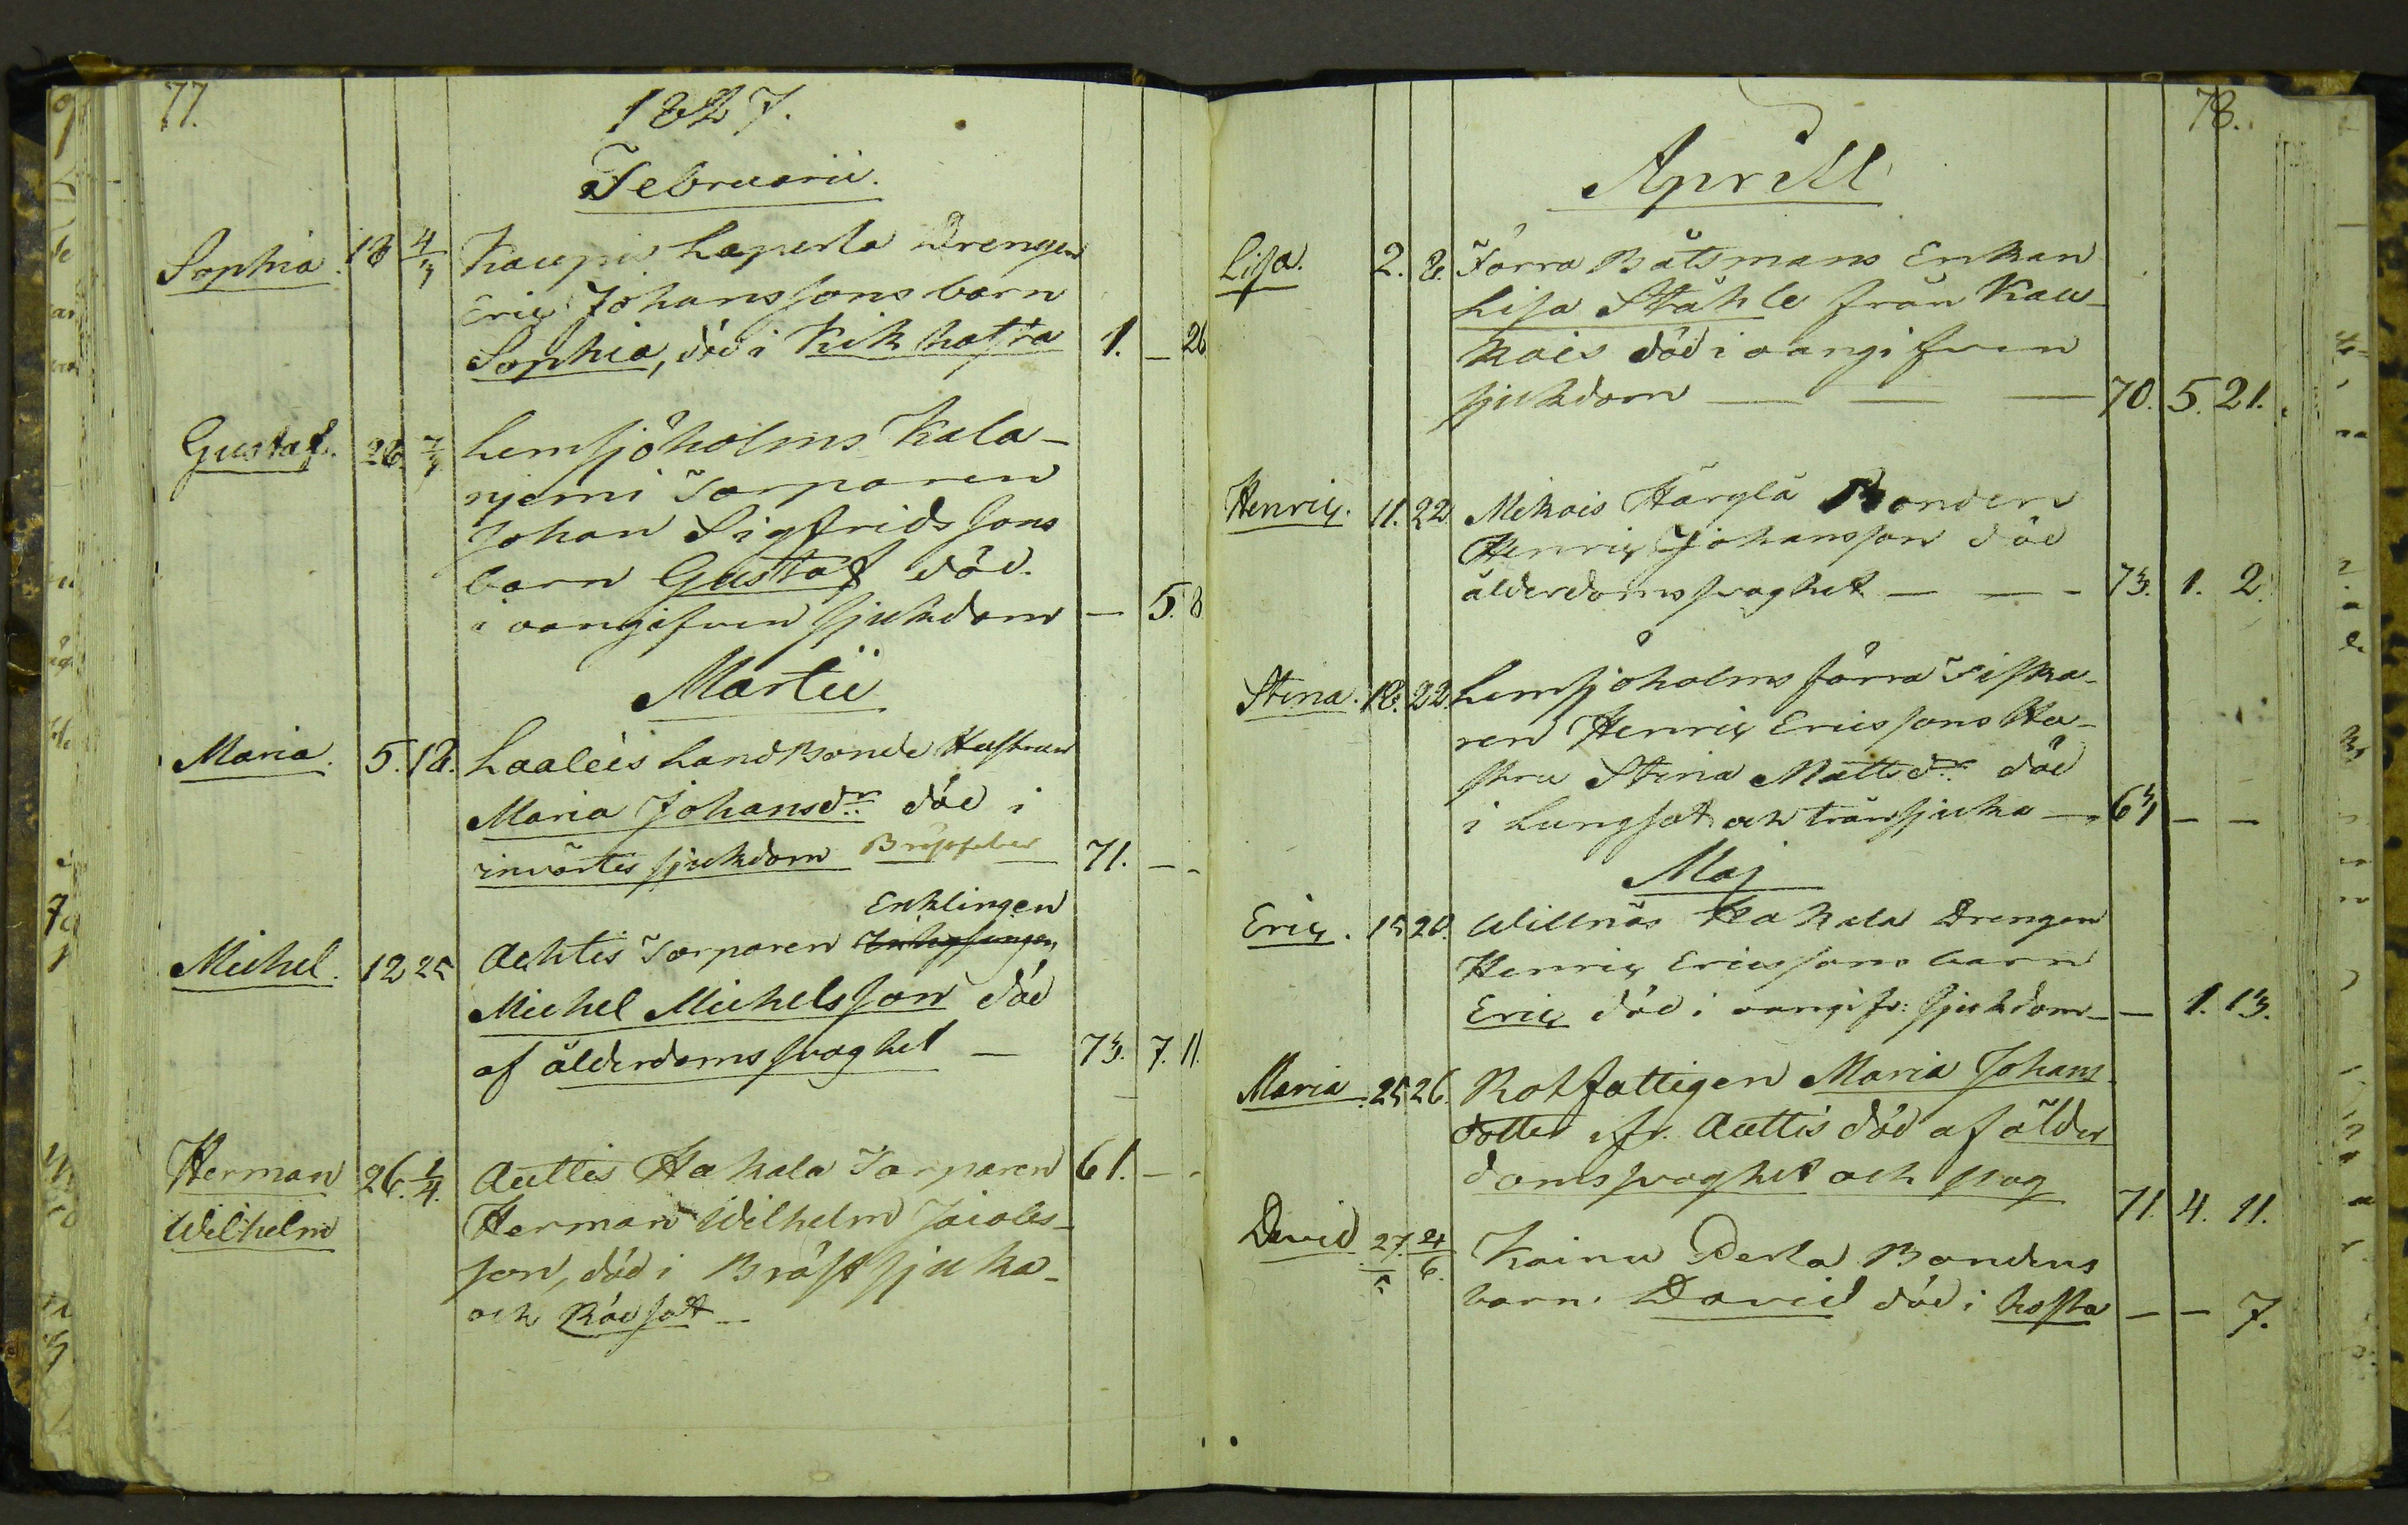 77.
1827.
Februarii.
Sophia. 18 4/3 Kaupis Laperla Drengen
Eric Johanssons barn
Sophia, död i Kikhosta 1. – 26
Gustaf. 26. 7/3 Lemsjöholms Kala-
njemi Torparen
Johan Sigfridssons
barn Gustaf död.
i oangifven sjukdom – 5. 8
Martii
Maria. 5. 18. Laaleis Landbonde Hustrun
Maria Johansdr. död i
invärtes sjukdom Bröstfeber 71. – -
Enklingen
Michel. 12 25 Achtis Torparen
Michel Michelsson död
af ålderdomssvaghet – 73. 7. 11.
Herman 26. 1/4. Auttis Hakala Torparen 61. – -
Wilhelm Herman Wilhelm Jacobs-
son, död i Bröstsjuka-
och Rödsot –
78.
Aprill
Lisa. 2. 8. Förra Båtsmans Enkan
Lisa Ståhle från Kau-
kois död i oangifven
sjukdom – – – 70. 5. 21.
Henric. 11. 22. Mikois Härglä Bonden
Henric Johansson död
ålderdomssvaghet – – - 73. 1. 2.
Stina. 18. 22. Lemsjöholms förra Fiska-
ren Henric Ericssons Hu-
stru Stina Mattsdr. död
i Lungsot och transjuka – 61 – –
Maj
Eric. 15 20. Willnäs Hakala Drengen
Henric Ericssons barn
Eric död i oangifv: sjukdom – – 1. 13.
Maria. 25 26. Rotfattigen Maria Johans
dotter ifr. Auttis död af ålder
domssvaghet och 71. 4. 11.
David 27./5 24/6. Kainu Perla Bondens
barn. David död i hosta – – 7.